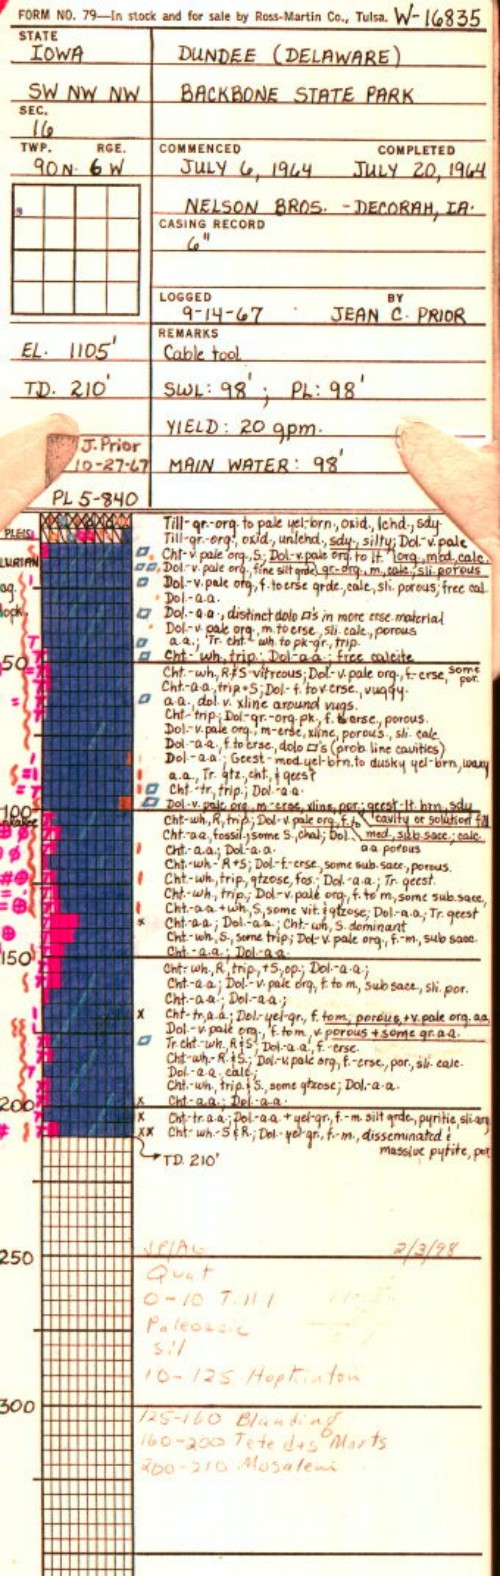 FORM NO. 79—In stock and for sale by Ross-Martin Co., Tulsa. W-16835
STATE
IOWA
DUNDEE (DELAWARE)
SW NW NW
BACKBONE STATE PARK
SEC.
16
TWP. RGE.
90N 6W
COMMENCED COMPLETED
JULY 6, 1964 JULY 20, 1964
NELSON BROS. - DECORAH, IA.
CASING RECORD
6"
LOGGED BY
9-14-67 JEAN C. PRIOR
REMARKS
EL. 1105'
Cable tool
TD. 210'
SWL: 98' ; PL: 98'
YIELD: 20 gpm.
J. Prior
10-27-67
MAIN WATER: 98'
PL 5-840
PLEIS
LURIAN
Till-gr-org to pale yel-brn., oxid., lchd., sdy
Till-gr-org., oxid., unlehd., sdy., silty; Dol-v.pale
Cht-v.pale org., S; Dol-v.pale org. to lt. org., med., calc.
Dol-v.pale org., fine silt grde), gr-org., m., calc., sli. porous
Dol-v.pale org., f. to crse grde., calc., sli. porous; free cal
Dol-a.a.
Dol-a.a., distinct dolo □'s in more crse. material
Dol-v. pale org., m. to crse, sli. calc., porous
a.a.; Tr. cht-wh. to pk-gr., trip.
50
Cht-wh., trip.; Dol-a.a.; free calcite
Cht-wh., R+S-vitreous; Dol-v.pale org., f-crse, some por.
Cht-a.a., trip+S; Dol-f. to v.crse., vuggy.
a.a., dol. v. xline around vugs.
Cht-trip.; Dol-gr-org-pk., f. to crse., porous.
Dol-v. pale org., m-crse, xline, porous, sli. calc
Dol-a.a., f. to crse, dolo □'s (prob. line cavities)
Dol-a.a.; Geest-mod. yel-brn. to dusky yel-brn., waxy
a.a., Tr. qtz, cht., & geest
Cht-tr, trip.; Dol-a.a.
100
Dol-v. pale org., m-crse, xline, por.; geest-lt. brn., sdy
Cht-wh, R, trip; Dol-v. pale org., f. to med., sub sacc., calc. cavity or solution fill
Cht-a.a., fossil., some S, chal.; Dol. a.a porous
Cht-a.a.; Dol-a.a.
Cht-wh-R+S; Dol-f-crse., some sub. sacc., porous.
Cht-wh., trip, qtzose, fos.; Dol-a.a.; Tr. geest.
Cht-wh., trip.; Dol-v. pale org., f. to m., some sub. sacc.,
Cht-a.a.+wh., S, some vit. & qtzose; Dol-a.a.; Tr. geest
Cht-a.a.; Dol-a.a.; Cht-wh., S dominant
Cht-wh., S., some trip.; Dol-v. pale org., f.-m., sub sacc.
Cht-a.a.; Dol-a.a.
150
Cht-wh., R, trip.,+S, op.; Dol-a.a.;
Cht-a.a.; Dol-v. pale org., f. to m., sub sacc., sli. por.
Cht-a.a.; Dol-a.a.;
Cht-tr, a.a.; Dol-yel-gr., f. to m., porous, +v. pale org., a.a
Dol-v. pale org., f. to m., v. porous + some gr. a.a.
Tr. cht-wh., R+S; Dol-a.a., f.-crse.
Cht-wh-R.+S.; Dol-v. pale org., f.-crse., por., sli. calc.
Dol-a.a., calc.;
Cht-wh., trip.+S., some qtzose; Dol-a.a.
200
Cht-a.a.; Dol-a.a.
Cht-tr. a.a.; Dol-a.a. + yel-gr., f.-m. silt grde., pyritic, sli. arg
Cht-wh.-S+R.; Dol-yel-gr., f.-m., disseminated & massive pyrite, por
TD. 210'
250
2/3/98
Quat
0-10 Till
Paleozoic
Sil
10-125 Hopkinton
300
125-160 Blanding
160-200 Tete des Morts
200-210 Mosalem